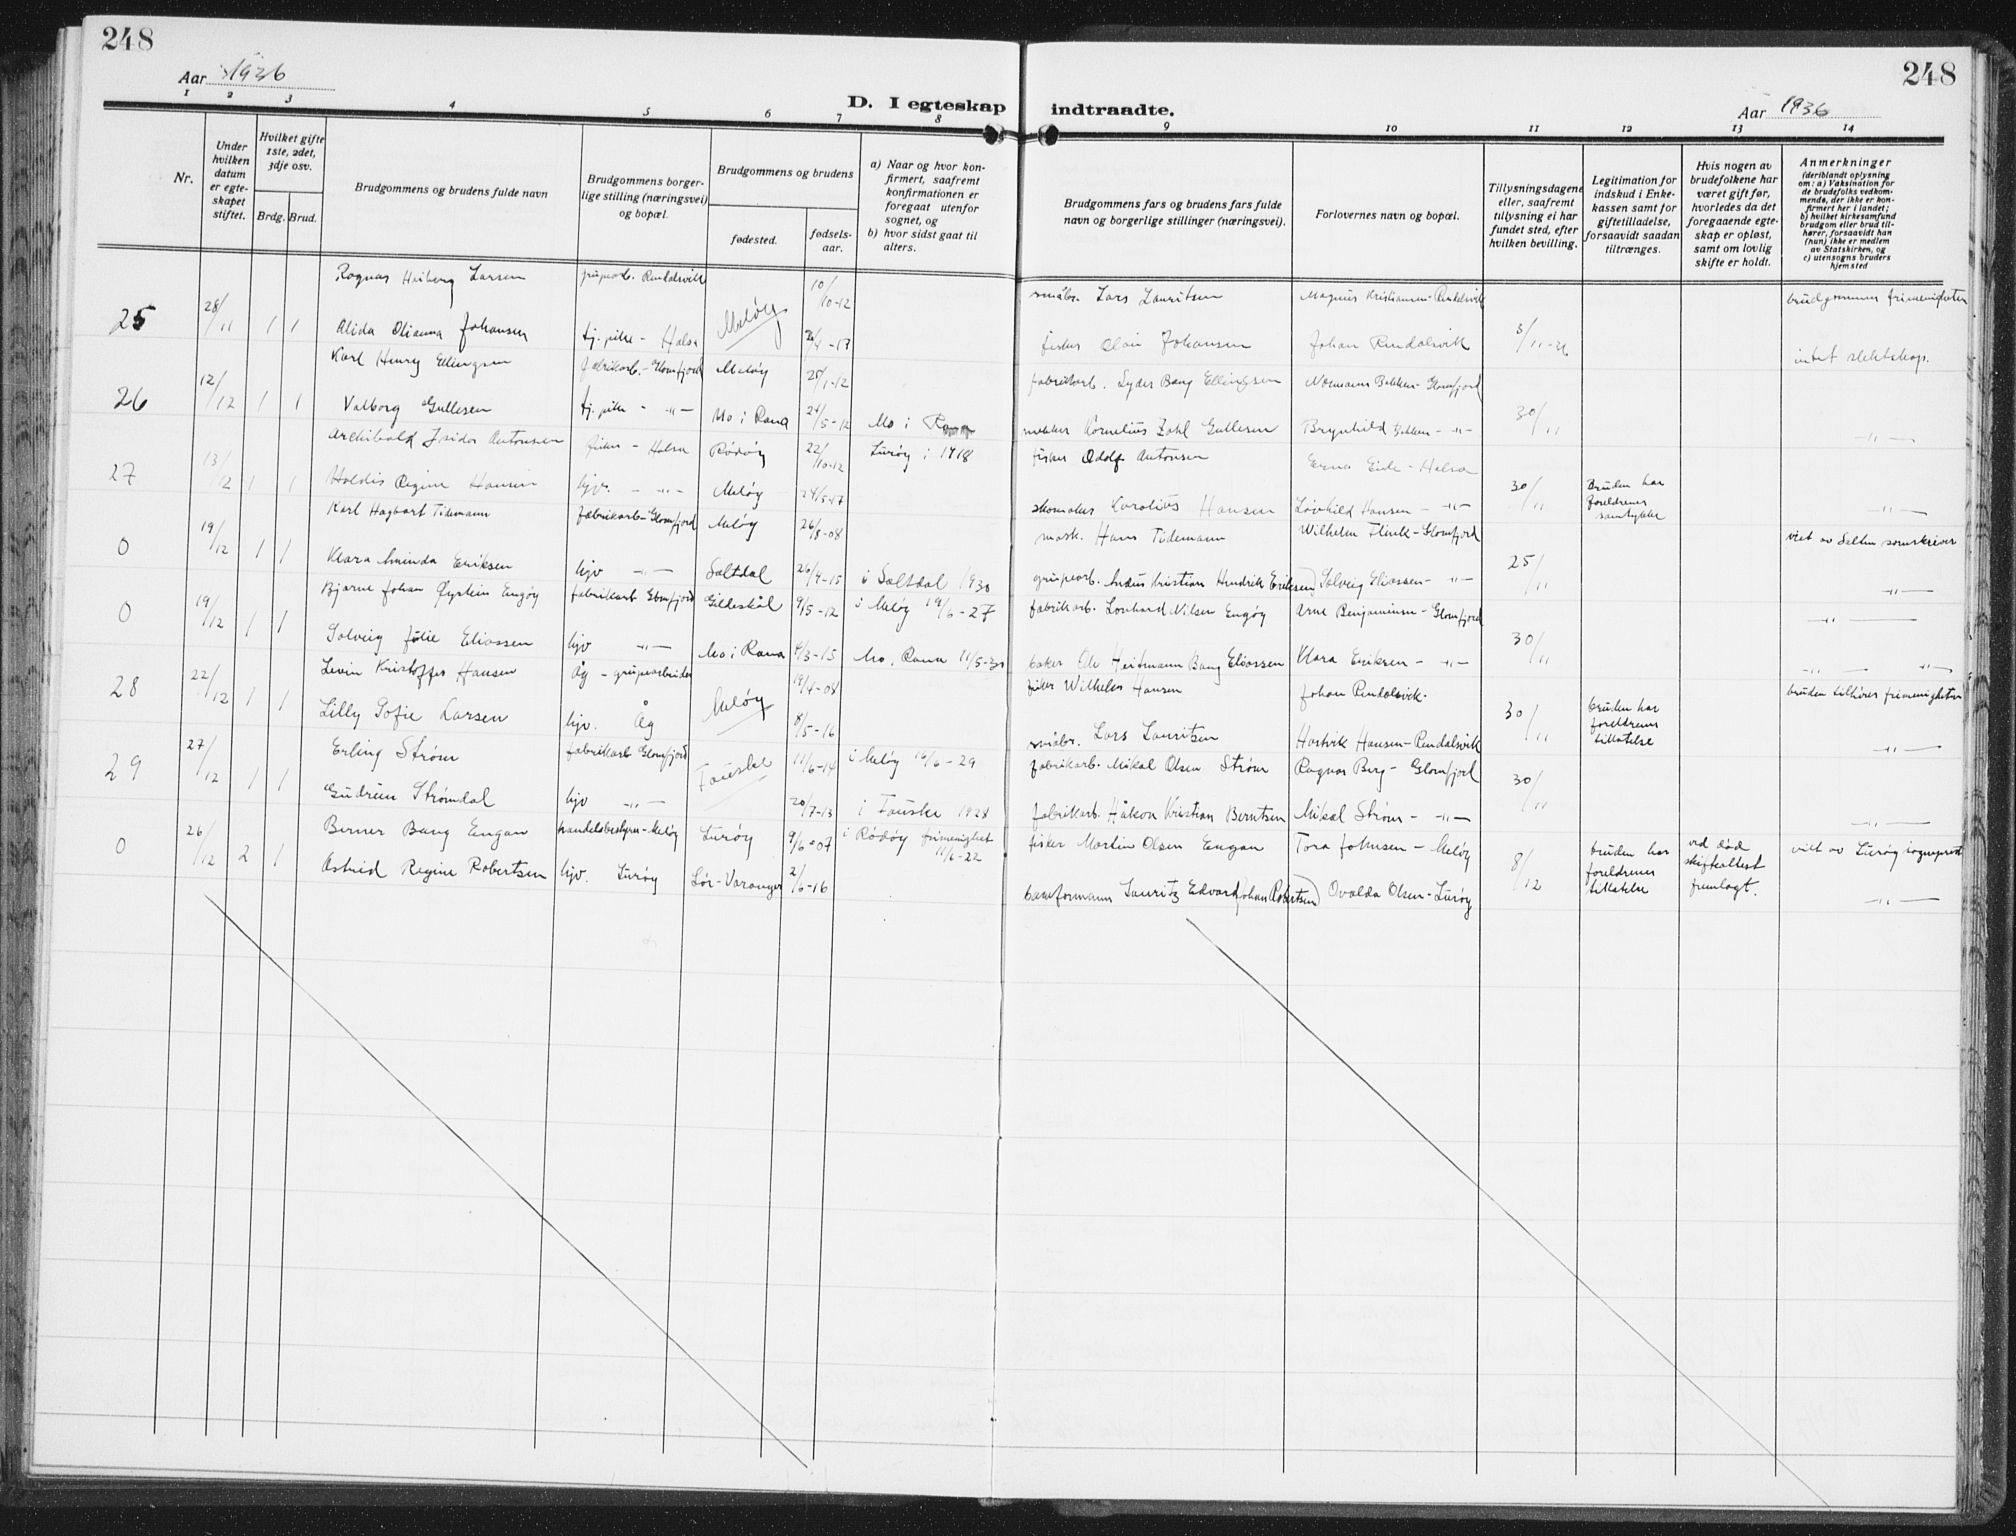 248
Aar 1936
D. I egteskap indtraadte.
Aar 1936
248
1 2 3 4 5 6 7 8 9 10 11 12 13 14
Nr.
Under hvilken datum er egteskapet stiftet.
Hvilket gifte 1ste, 2det, 3dje osv.
Brdg. Brud.
Brudgommens og brudens fulde navn
Brudgommens borgerlige stilling (næringsvei) og bopæl.
Brudgommens og brudens
fødested.
fødselsaar.
a) Naar og hvor konfirmert, saafremt konfirmationen er foregaat utenfor sognet, og
b) hvor sidst gaat til alters.
Brudgommens fars og brudens fars fulde navn og borgerlige stillinger (næringsvei).
Forlovernes navn og bopæl.
Tillysningsdagene eller, saafremt tillysning ei har fundet sted, efter hvilken bevilling.
Legitimation for indskud i Enkekassen samt for giftetilladelse, forsaavidt saadan tiltrænges.
Hvis nogen av brudefolkene har været gift før, hvorledes da det foregaaende egteskap er opløst, samt om lovlig skifte er holdt.
Anmerkninger
(deriblandt oplysning om: a) Vaksination for de brudefolks vedkommende, der ikke er konfirmert her i landet; b) hvilket kirkesamfund brudgom eller brud tilhører, forsaavidt han (hun) ikke er medlem av Statskirken, og c) utensogns bruders hjemsted
25 28/11 1 1 Ragnar Heiberg Larsen gruvearb. Rendalsvik Meløy 10/10-12 småbr. Lars Lauritsen Magnus Kristiansen - Rendalsvik brudgommen frimenigheten
Alida Olianna Johansen tj. pike - Halsa /4-17 fisker Olai Johansen Johan Rendalsvik 8/11-26 intet slektskap.
26 12/12 1 1 Karl Henry Ellingsen fabrikarb. - Glomfjord Meløy 25/1-12 fabrikarb. Syder Bang Ellingsen Normann Bekken - Glomfjord
Valborg Gullesen tj. pike - " - Mo i Rana 24/5-12 Mo i Rana Kornelius Zahl Gullesen Brynhild Bekken - " - 30/11 - " -
27 13/12 1 1 Archibald Isidor Antonsen fisker - Halsa Rødøy 22/10-12 Lurøy i 1918 fisker Adolf Antonsen Erna Eide - Halsa
Haldis Regine Hansen hjv. - " - Meløy 24/5-17 skomaker Karolius Hansen Løvhild Hansen - " - 30/11 Bruden har foreldrenes samtykke - " -
0 19/12 1 1 Karl Hagbart Tidemann fabrikarb - Glomfjord Meløy 26/8-08 mask. Hans Tidemann Wilhelm Flink - Glomfjord viet av Salten sorenskriver
Klara Aminda Eriksen hjv - " - Saltdal 26/4-15 i Saltdal 1930 gruvearb. Andeus Kristian Hendrik Eriksen Solveig Eliassen - " - 25/11 - " -
0 19/12 1 1 Bjarne Johan Øystein Engøy fabrikarb Glomfjord Gilleskål 9/5-12 i Meløy 19/6-27 fabrikarb. Lonhard Nilsen Engøy Arne Benjaminsen - Glomfjord - " -
Solveig Julie Eliassen hjv - " - Mo i Rana 4/3-15 Mo, Rana 11/5-30 baker Ole Heitmann Bang Eliassen Klara Eriksen - " - 30/11 - " - - " -
28 22/12 1 1 Levin Kristoffer Hansen Åg - gruvearbeider Meløy 19/4-08 fisker Wilhelm Hansen Johan Rendalsvik. bruden tilhører frimenigheten
Lilly Sofie Larsen hjv. Åg 8/5-16 småbr. Lars Lauritsen Hartvik Hansen - Rendalsvik 30/11 bruden har foreldrenes tillatelse - " -
29 27/12 1 1 Erling Strøm fabrikarb Glomfjord Fauske 11/6-14 i Meløy 16/6-29 fabrikarb. Mikal Olsen Strøm Ragnar Berg - Glomfjord
Gudrun Strømdal hjv - " - 20/7-13 i Fauske 1928 fabrikarb. Håkon Kristian Berntsen Mikal Strøm - " - 30/11 - " -
0 26/12 2 1 Berner Bang Engan handelsbestyrer - Meløy Lurøy 9/6-07 i Rødøy frimenighet 11/6-22 fisker Martin Olsen Engan Tora Johnsen - Meløy viet av Lurøy sogneprest
Astrid Regine Robertsen hjv. Lurøy Sør-Varanger 2/6-16 baseformann Lauritz Edvard Johan Robertsen Ovalda Olsen - Lurøy 8/12 bruden har foreldrenes tillatelse ved død skifteattest fremlagt. - " -